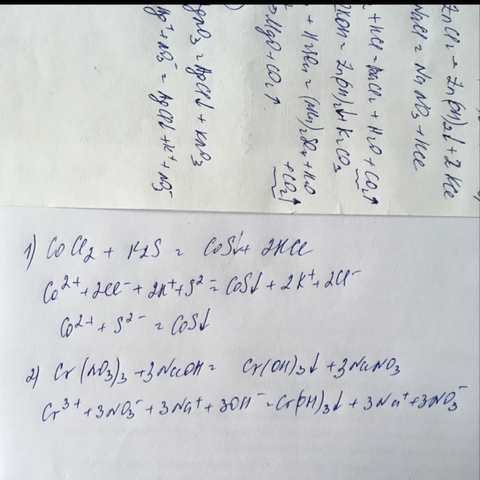 ZnCl2 + Zn(OH)2↓ + 2KCl
NaCl = NaNO3 + HCl
+ HCl = + H2O + CO2↑
KOH = Zn(OH)2↓ + K2CO3
+ H2O
+ CO2↑
= MgO + CO2↑
= AgCl↓ + KNO3
= AgCl↓ + K⁺ + NO3⁻
1) CoCl2 + K2S = CoS↓ + 2KCl
Co²⁺ + 2Cl⁻ + 2K⁺ + S²⁻ = CoS↓ + 2K⁺ + 2Cl⁻
Co²⁺ + S²⁻ = CoS↓
2) Cr(NO3)3 + 3NaOH = Cr(OH)3↓ + 3NaNO3
Cr³⁺ + 3NO3⁻ + 3Na⁺ + 3OH⁻ = Cr(OH)3↓ + 3Na⁺ + 3NO3⁻